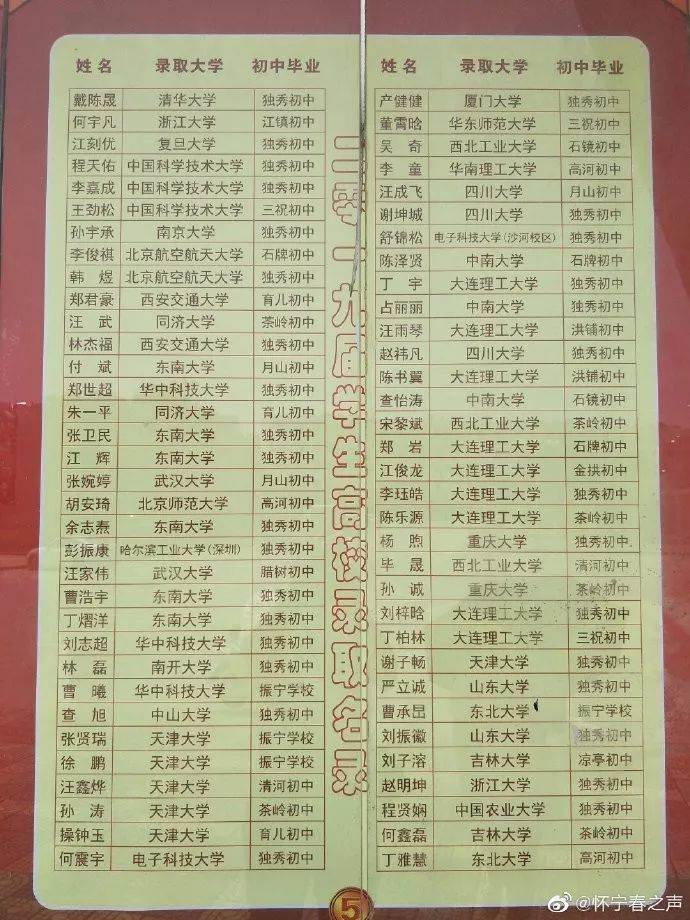 姓名 录取大学 初中毕业
戴陈晟 清华大学 独秀初中
何宇凡 浙江大学 江镇初中
江刻优 复旦大学 独秀初中
程天佑 中国科学技术大学 独秀初中
李嘉成 中国科学技术大学 独秀初中
王劲松 中国科学技术大学 三祝初中
孙宇承 南京大学 独秀初中
李俊祺 北京航空航天大学 石牌初中
韩煜 北京航空航天大学 独秀初中
郑君豪 西安交通大学 育儿初中
汪武 同济大学 茶岭初中
林杰福 西安交通大学 独秀初中
付斌 东南大学 月山初中
郑世超 华中科技大学 独秀初中
朱一平 同济大学 育儿初中
张卫民 东南大学 独秀初中
江辉 东南大学 独秀初中
张婉婷 武汉大学 月山初中
胡安琦 北京师范大学 高河初中
余志焘 东南大学 独秀初中
彭振康 哈尔滨工业大学(深圳) 独秀初中
汪家伟 武汉大学 腊树初中
曹浩宇 东南大学 独秀初中
丁熠洋 东南大学 独秀初中
刘志超 华中科技大学 独秀初中
林磊 南开大学 独秀初中
曹曦 华中科技大学 振宁学校
查旭 中山大学 独秀初中
张贤瑞 天津大学 振宁学校
徐鹏 天津大学 振宁学校
汪鑫烨 天津大学 清河初中
孙涛 天津大学 茶岭初中
操钟玉 天津大学 育儿初中
何震宇 电子科技大学 独秀初中
一九届学生高校录取名录
姓名 录取大学 初中毕业
产健健 厦门大学 独秀初中
董霄晗 华东师范大学 三祝初中
吴奇 西北工业大学 石镜初中
李童 华南理工大学 高河初中
汪成飞 四川大学 月山初中
谢坤城 四川大学 独秀初中
舒锦松 电子科技大学(沙河校区) 独秀初中
陈泽贤 中南大学 石牌初中
丁宇 大连理工大学 独秀初中
占丽丽 中南大学 独秀初中
汪雨琴 大连理工大学 洪铺初中
赵祎凡 四川大学 独秀初中
陈书翼 大连理工大学 洪铺初中
查怡涛 中南大学 石镜初中
宋黎斌 西北工业大学 茶岭初中
郑岩 大连理工大学 石牌初中
江俊龙 大连理工大学 金拱初中
李珏皓 大连理工大学 独秀初中
陈乐源 大连理工大学 茶岭初中
杨煦 重庆大学 独秀初中
毕晟 西北工业大学 清河初中
孙诚 重庆大学 茶岭初中
刘梓晗 大连理工大学 独秀初中
丁柏林 大连理工大学 三祝初中
谢子畅 天津大学 独秀初中
严立诚 山东大学 独秀初中
曹承昆 东北大学 振宁学校
刘振徽 山东大学 独秀初中
刘子溶 吉林大学 凉亭初中
赵明坤 浙江大学 独秀初中
程贤娴 中国农业大学 独秀初中
何鑫磊 吉林大学 茶岭初中
丁雅慧 东北大学 高河初中
5
@怀宁春之声